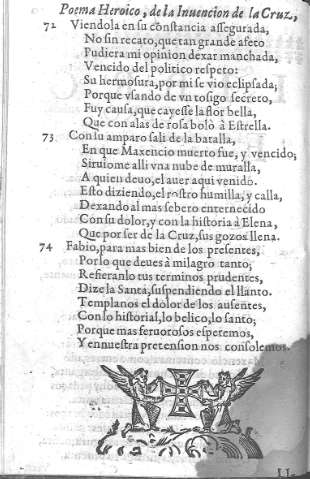 Poema Heroico, de la Inuencion de la Cruz,
72 Viendola en su constancia assegurada,
No sin recato, que tan grande afeto
Pudiera mi opinion dexar manchada,
Vencido del politico respeto:
Su hermosura, por mi se vio eclipsada;
Porque vsando de vn tosigo secreto,
Fuy causa, que cayesse la flor bella,
Que con alas de rosa bolò à Estrella.
73 Con su amparo sali de la batalla,
En que Maxencio muerto fue, y vencido;
Siruiome alli vna nube de muralla,
A quien deuo, el auer aqui venido.
Esto diziendo, el rostro humilla, y calla,
Dexando al mas sebero enternecido
Con su dolor, y con la historia à Elena,
Que por ser de la Cruz, sus gozos llena.
74 Fabio, para mas bien de los presentes,
Por lo que deues à milagro tanto,
Refieranlo tus terminos prudentes,
Dize la Santa, suspendiendo el llanto.
Templanos el dolor de los ausentes,
Con lo historial, lo belico, lo santo;
Porque mas feruorosos esperemos,
Y en nuestra pretension nos consolemos.